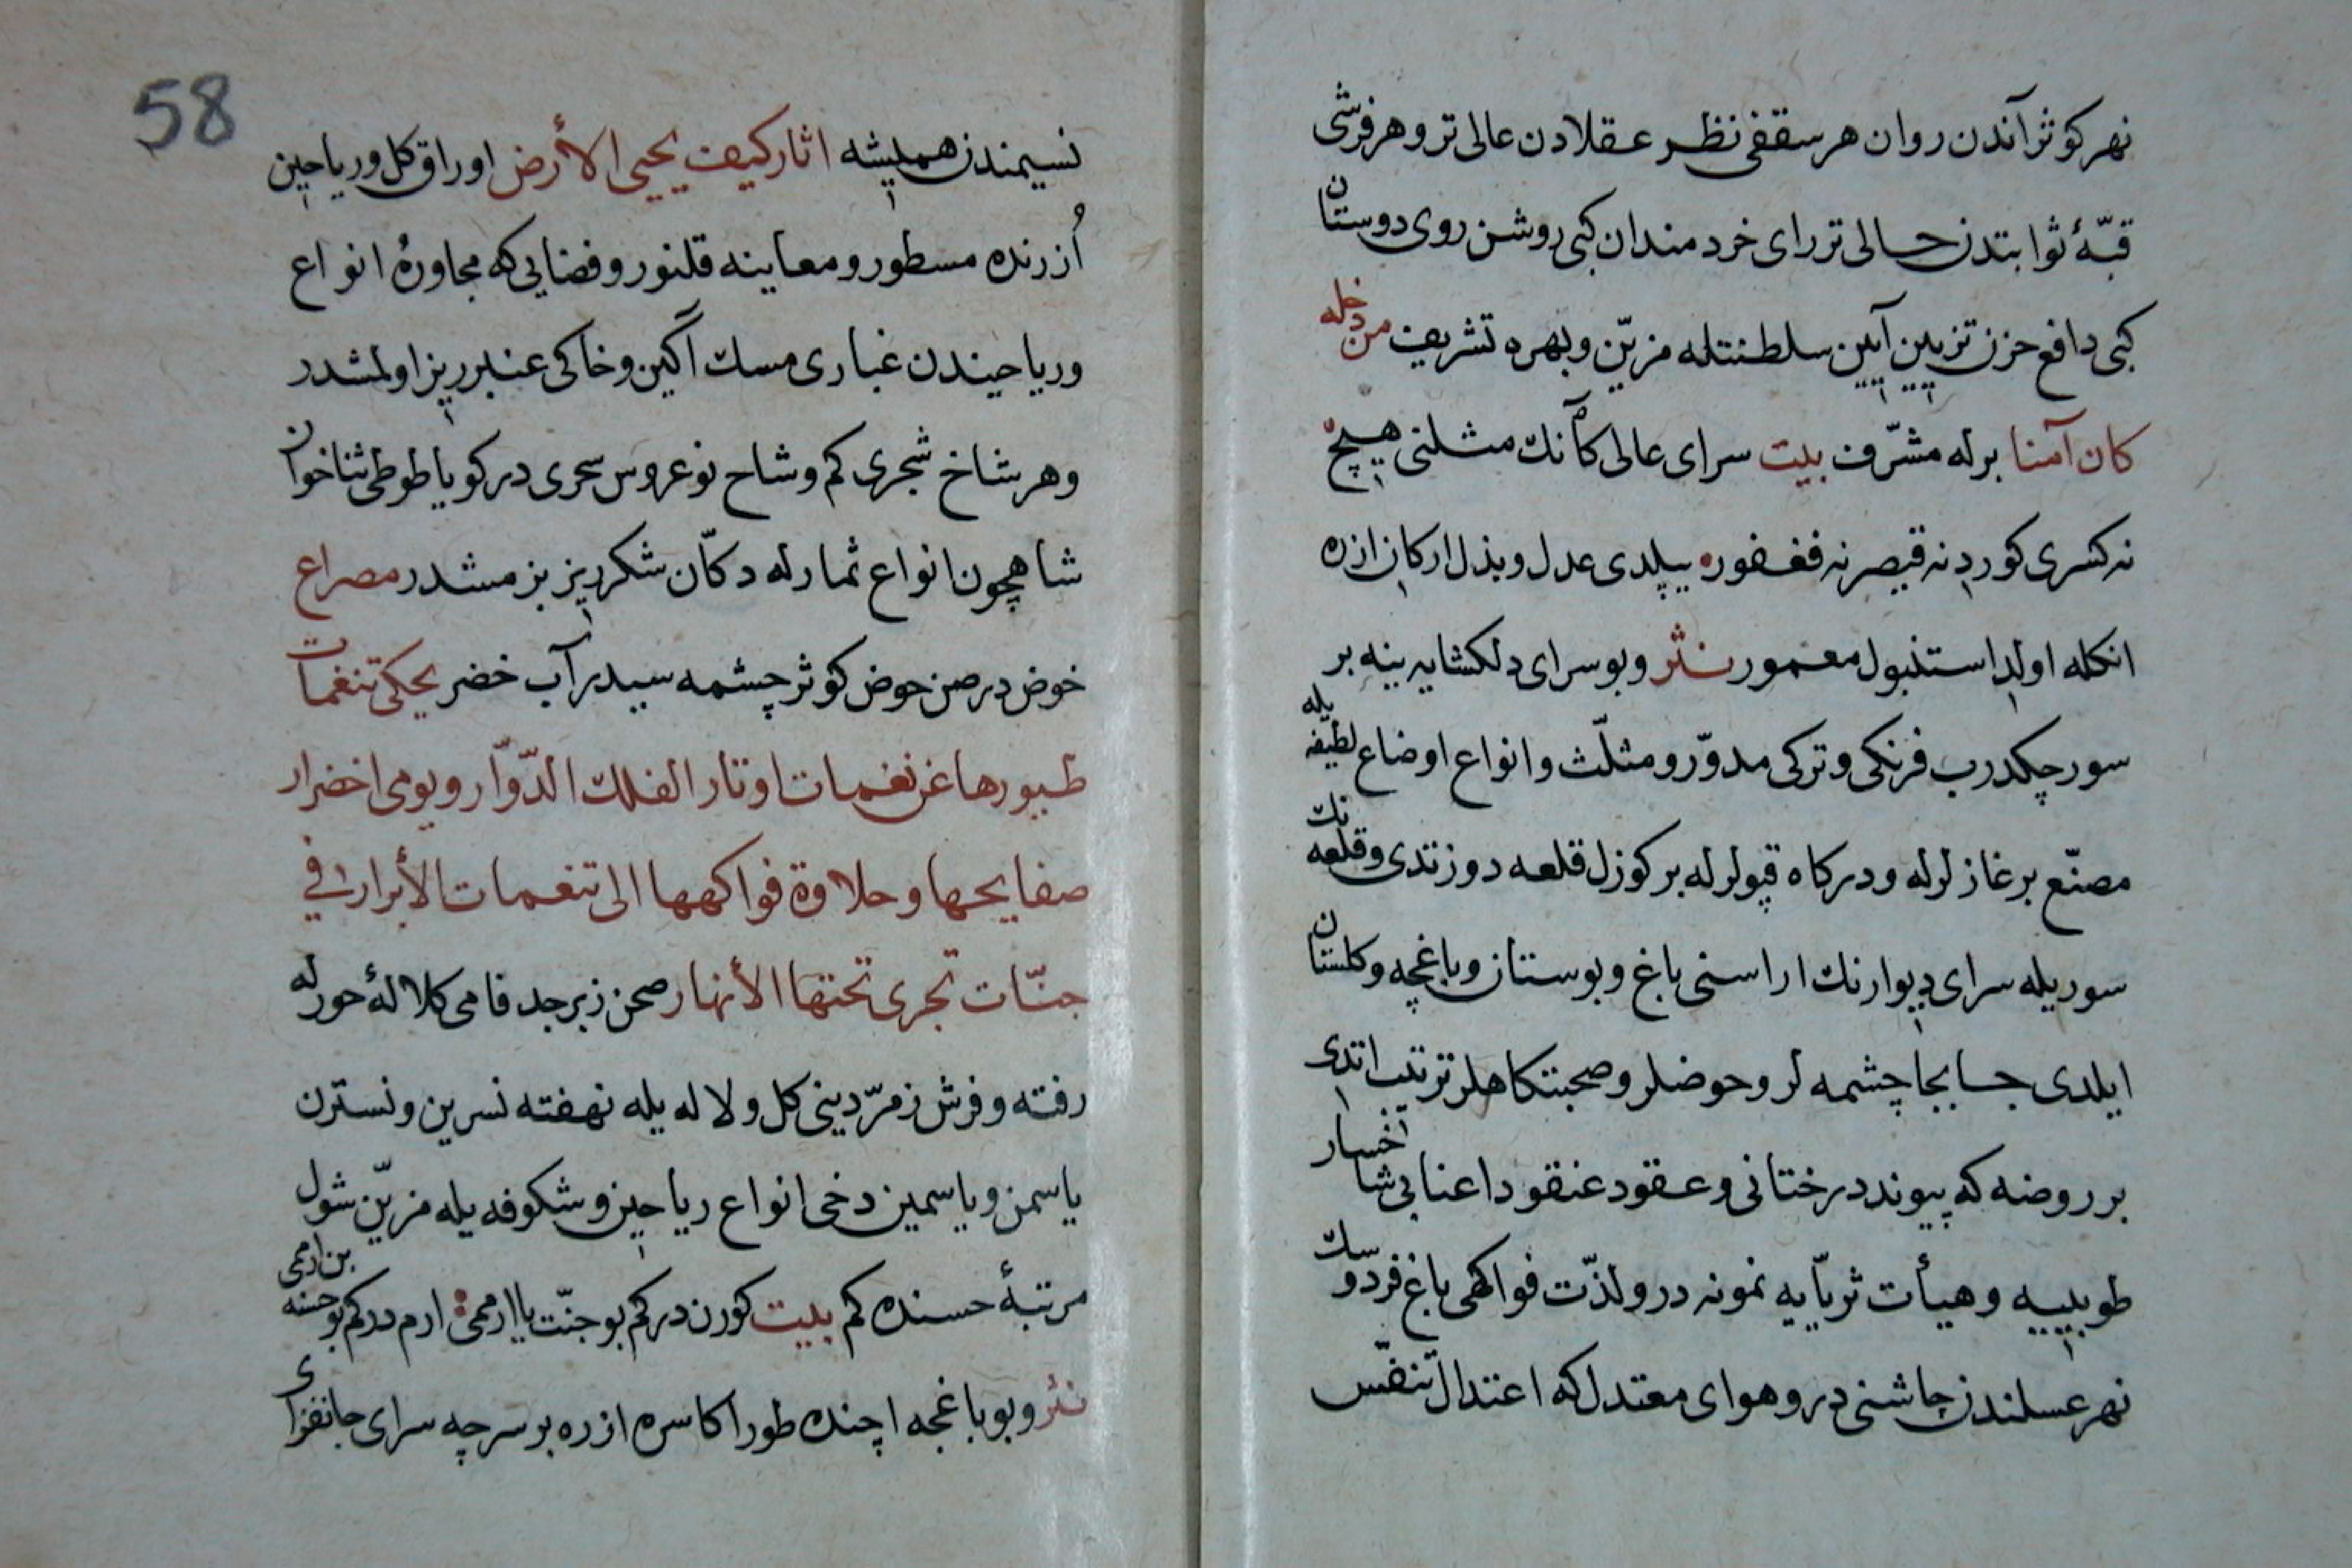 نهر كوثر آندن روان هر سقفى نظر عقلادن عالى تر و هر فرشى
قبّهٔ ثوابتدن حالى تر راى خردمندان كبى روشن روى دوستان
كبى دافع حزن تزيين آيين سلطنتله مزيّن و بهرهٔ تشريف من دخله
كان آمنا برله مشرّف بيت سراى عالى كآنك مثلنى هيچ
نه كسرى كوردى نه قيصر نه فغفور ييلدى عدل و بذل اركان ازره
انكله اولدى استنبول معمور نثر و بو سراى دلكشايه ينه بر
سور چكدرب فرنكى و تركى مدوّر و مثلّث و انواع اوضاع لطيفه يله
مصنّع برغازلرله و دركاه قپولرله بر كوزل قلعه دوزتدى و قلعه نك
سوريله سراى ديوارنك اراسنى باغ و بوستان و باغچه و كلستان
ايلدى جابجا چشمه لر و حوضلر و صحبتكاهلر ترتيب اتدى
بر روضه كه پيوند درختانى و عقود عنقود اعنابى شاخسار
طوبييه و هيأت ثريّايه نمونه در و لذّت فواكهى باغ فردوسك
نهر عسلندن چاشنى در و هواى معتدل كه اعتدال تنفّس
58
نسيمندن هميشه اثار كيف يحيى الأرض اوراق كل و رياحين
اُزرنده مسطور و معاينه قلنور و فضايى كه مجاورهٔ انواع
و رياحيندن غبارى مسك آگين و خاكى عنبرريز اولمشدر
و هر شاخ شجرى كم وشاح نوعروس سحرى در كويا طوطى ثناخوان
شاهچون انواع ثمارله دكّان شكرريز بزمشدر مصراع
خوض در صن حوض كوثر چشمه سيدر آب خضر يحكى تنغمات
طيورها عن نغمات اوتار الفلك الدّوّار و يومى اخضرار
صفايحها و حلاوة فواكهها الى تنعمات الأبرار فى
جنّات تجرى تحتها الأنهار صحن زبرجد فامى كلالهٔ حورله
رفته و فرش زمرّدينى كل و لاله يله نهفته نسرين و نسترن
ياسمن و ياسمين دخى انواع رياحين و شكوفه يله مزيّن شول
مرتبهٔ حسنده كم بيت كورن دركم بو جنّت يا ارممى ارم دركم بو حسنه بن ارمى
نثر و بو باغچه اچنده طور اكاسره ازره بر سرچه سراى جانفزاى